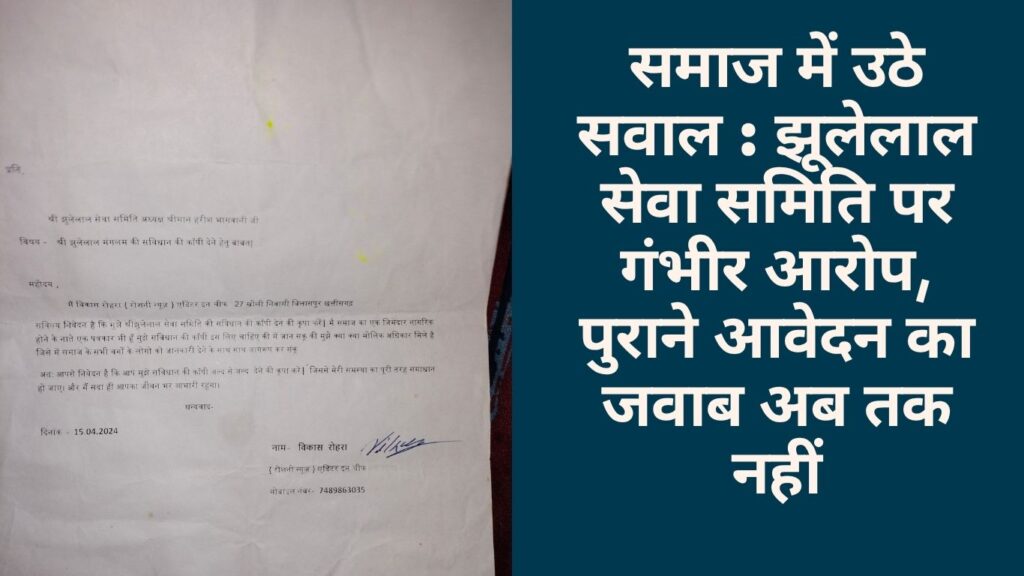 प्रति,
श्री झुलेलाल सेवा समिति अध्यक्ष श्रीमान हरीश भागवानी जी
विषय - श्री झुलेलाल मंगलम की संविधान की कॉपी देने हेतु बाबत।
महोदय ,
मैं विकास रोहरा ( रोशनी न्यूज ) एडिटर इन चीफ 27 खोली निवासी बिलासपुर छत्तीसगढ़
सविनय निवेदन है कि मुझे श्रीझुलेलाल सेवा समिति की संविधान की कॉपी देने की कृपा करें| मैं समाज का एक जिमेदार नागरिक
होने के नाते एक पत्रकार भी हूँ मुझे संविधान की कॉपी इस लिए चाहिए की मैं जान सकू की मुझे क्या क्या मौलिक अधिकार मिले है
जिसे मैं समाज के सभी वर्गो के लोगो को जानकारी देने के साथ साथ जागरूप कर सकू
अतः आपसे निवेदन है कि आप मुझे संविधान की कॉपी जल्द से जल्द देने की कृपा करे| जिससे मेरी समस्या का पूरी तरह समाधान
हो जाए। और मैं सदा ही आपका जीवन भर आभारी रहूंगा।
धन्यवाद-
दिनांक - 15.04.2024
नाम- विकास रोहरा
( रोशनी न्यूज ) एडिटर इन चीफ
मोबाइल नंबर- 7489863035
समाज में उठे
सवाल : झूलेलाल
सेवा समिति पर
गंभीर आरोप,
पुराने आवेदन का
जवाब अब तक
नहीं